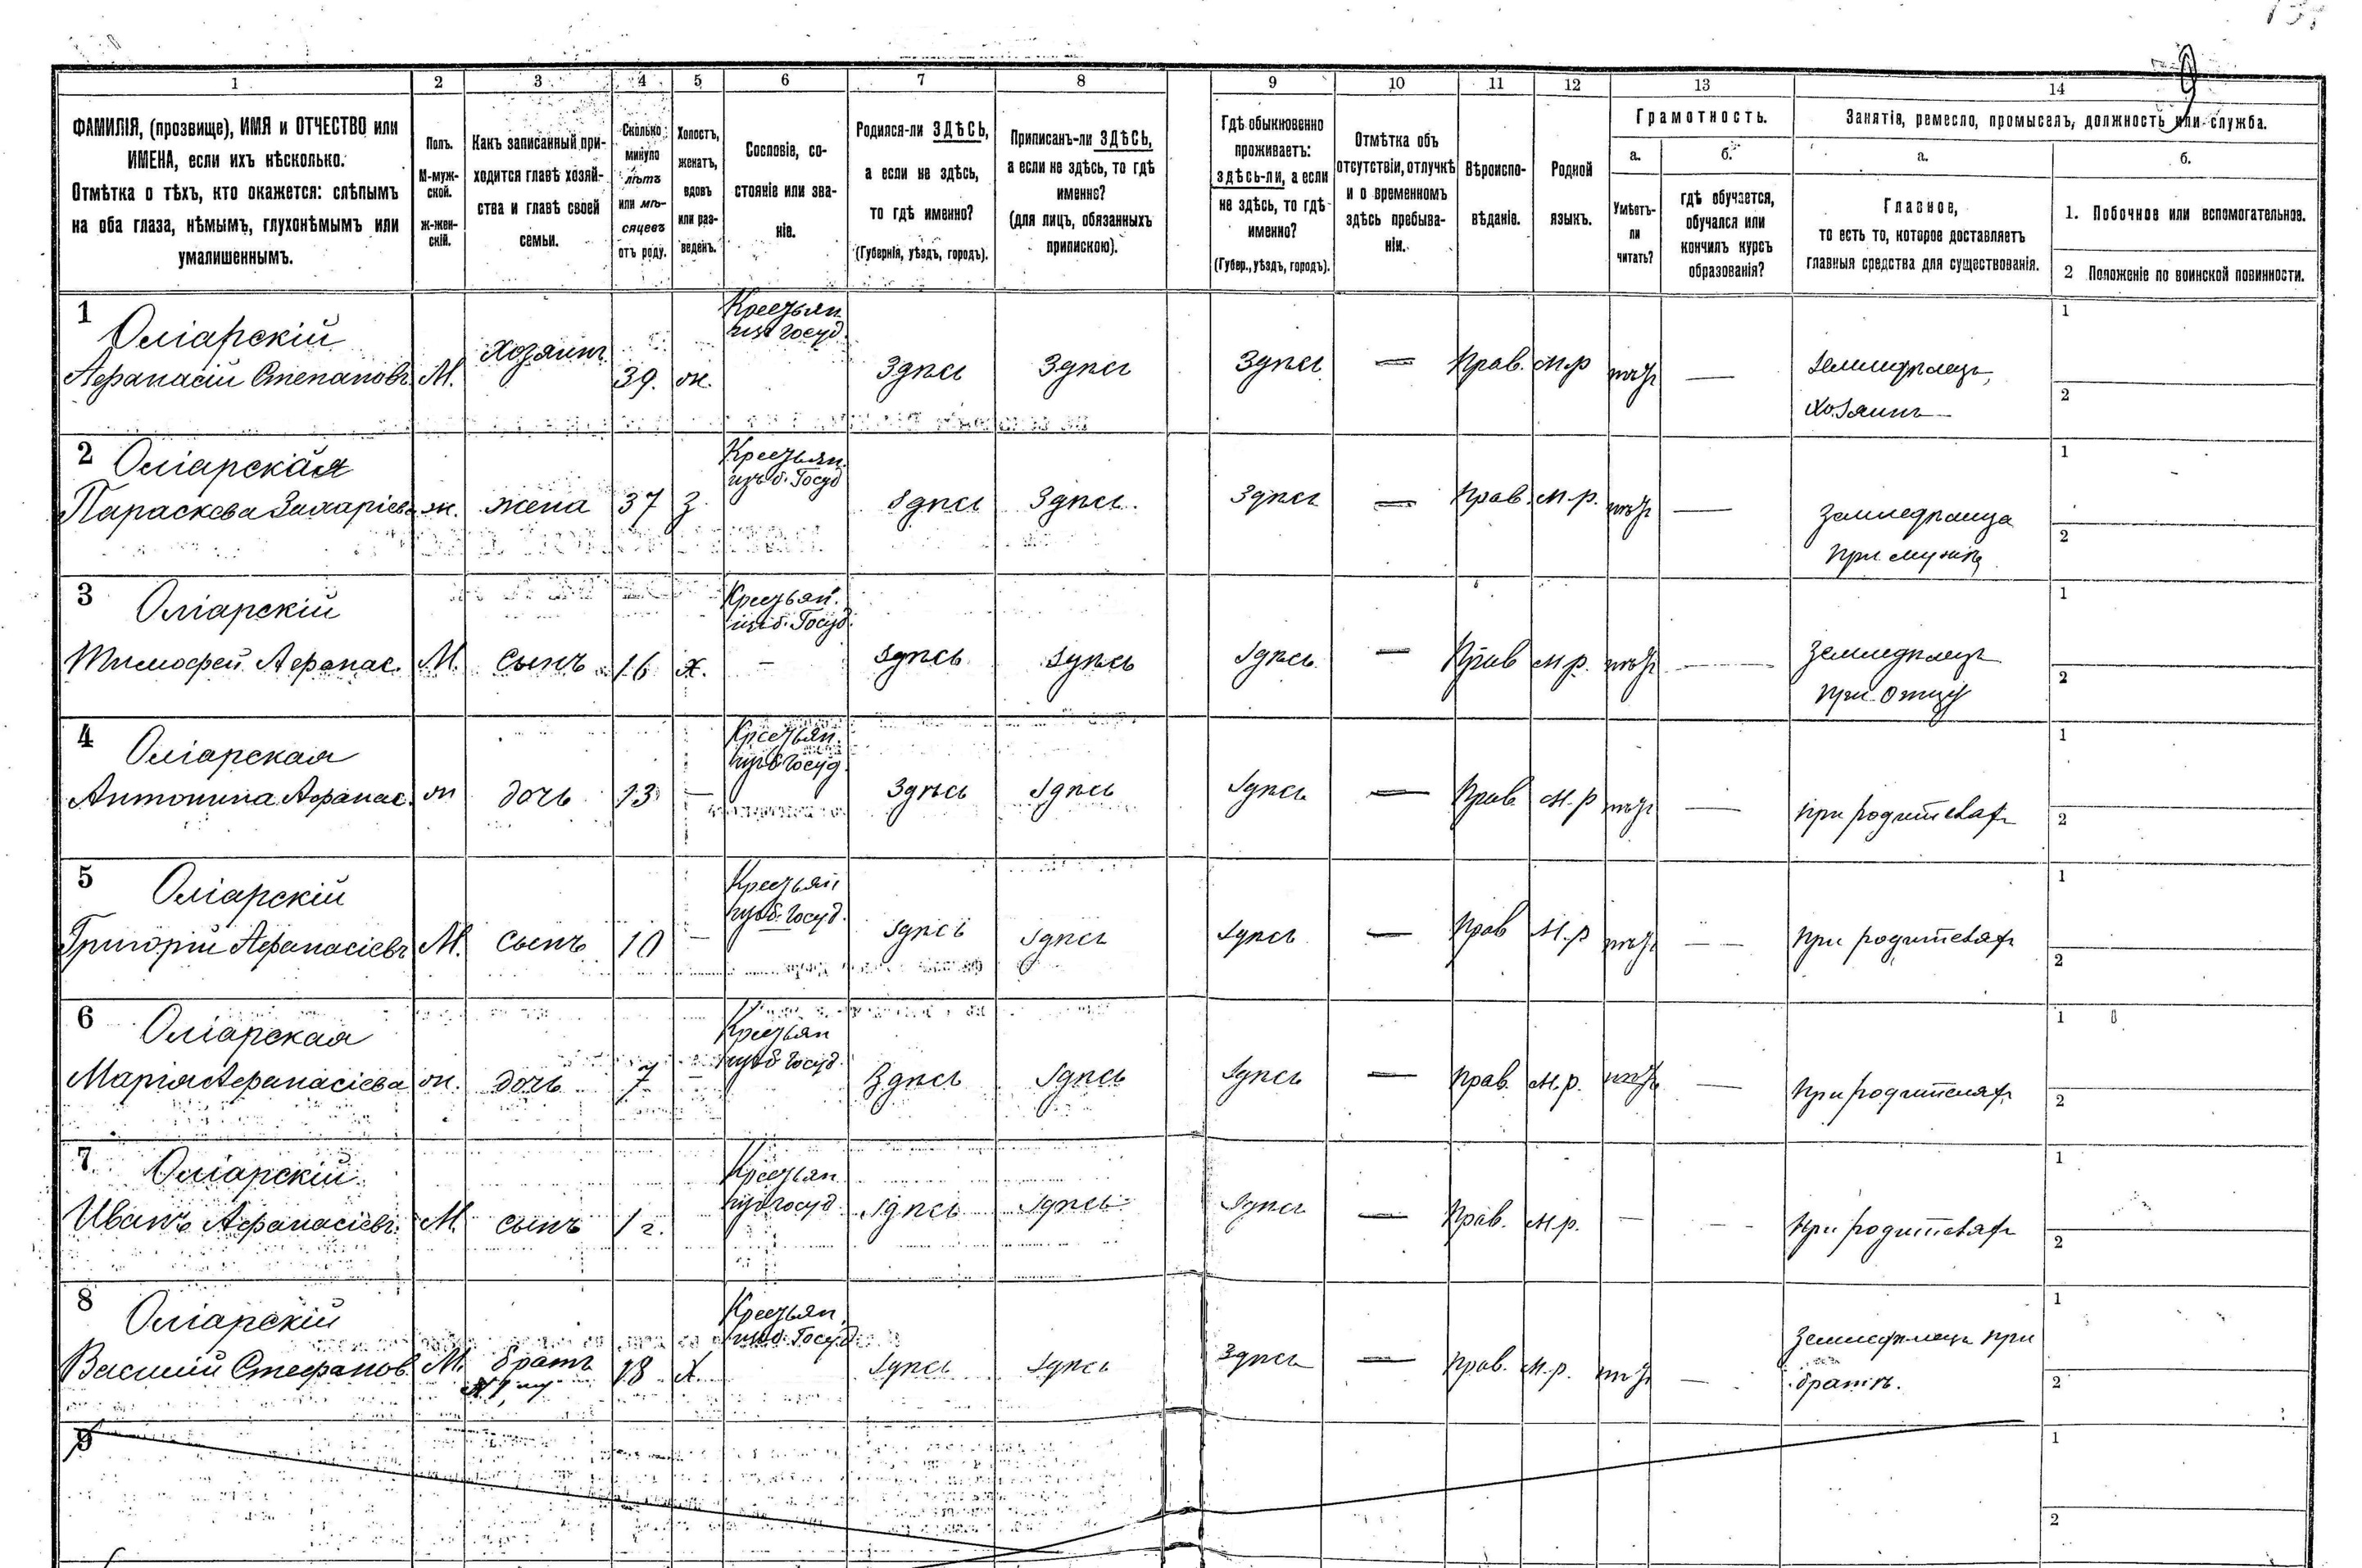 1 2 3 4 5 6 7 8 9 10 11 12 13 14
ФАМИЛІЯ, (прозвище), ИМЯ и ОТЧЕСТВО или
ИМЕНА, если ихъ нѣсколько.
Отмѣтка о тѣхъ, кто окажется: слѣпымъ
на оба глаза, нѣмымъ, глухонѣмымъ или
умалишеннымъ.
Полъ.
М-муж-
ской.
ж-жен-
скій.
Какъ записанный при-
ходится главѣ хозяй-
ства и главѣ своей
семьи.
Сколько
минуло
лѣтъ
или мѣ-
сяцевъ
отъ роду.
Холостъ,
женатъ,
вдовъ
или раз-
веденъ.
Сословіе, со-
стояніе или зва-
ніе.
Родился-ли ЗДѢСЬ,
а если не здѣсь,
то гдѣ именно?
(Губернія, уѣздъ, городъ).
Приписанъ-ли ЗДѢСЬ,
а если не здѣсь, то гдѣ
именно?
(для лицъ, обязанныхъ
припискою).
Гдѣ обыкновенно
проживаетъ:
здѣсь-ли, а если
не здѣсь, то гдѣ
именно?
(Губер., уѣздъ, городъ).
Отмѣтка объ
отсутствіи, отлучкѣ
и о временномъ
здѣсь пребыва-
ніи.
Вѣроиспо-
вѣданіе.
Родной
языкъ.
Грамотность.
а.
Умѣетъ-
ли
читать?
б.
гдѣ обучается,
обучался или
кончилъ курсъ
образованія?
Занятіе, ремесло, промыселъ, должность или служба.
а.
Главное,
то есть то, которое доставляетъ
главныя средства для существованія.
б.
1. Побочное или вспомогательное.
2 Положеніе по воинской повинности.
1
Оліарскій
Афанасій Степановъ М. Хозяинъ 39. ж.
Крестьян.
изъ б. госуд.
Здѣсь Здѣсь Здѣсь — Прав. м.р нѣтъ —
Земледѣлецъ,
Хозяинъ
1
2
2
Оліарская
Параскева Захаріева ж. жена 37 з.
Крестьян.
изъ б. Госуд
Здѣсь Здѣсь. Здѣсь — Прав. м.р. нѣтъ —
Земледѣлица
при мужѣ
1
2
3
Оліарскій
Тимофей Афанас. М. сынъ 16 х.
Крестьян.
изъ б. Госуд.
—
Здѣсь Здѣсь Здѣсь — Прав м.р. нѣтъ —
Земледѣлецъ
при отцу
1
2
4
Оліарская
Антонина Афанас. ж дочь 13 —
Крестьян.
изъ б госуд.
Здѣсь Здѣсь Здѣсь — Прав м.р нѣтъ —
при родителяхъ
1
2
5
Оліарскій
Григорій Афанасіевъ М. сынъ 10 —
Крестьян
изъ б. госуд.
Здѣсь Здѣсь Здѣсь — Прав м.р нѣтъ —
при родителяхъ
1
2
6
Оліарская
Марія Афанасіева ж. дочь 7 —
Крестьян
изъ б госуд.
Здѣсь Здѣсь Здѣсь — Прав. м.р. нѣтъ —
при родителяхъ
1
2
7
Оліарскій
Иванъ Афанасіевъ. М. сынъ 1 г.
Крестьян
изъ б госуд.
Здѣсь Здѣсь Здѣсь — Прав. м.р. — —
при родителяхъ
1
2
8
Оліарскій
Василій Стефанов. М. братъ 18 х.
Крестьян.
изъ б. Госуд
Здѣсь Здѣсь Здѣсь — Прав. м.р. нѣтъ —
Земледѣлецъ при
братѣ.
1
2
9
1
2